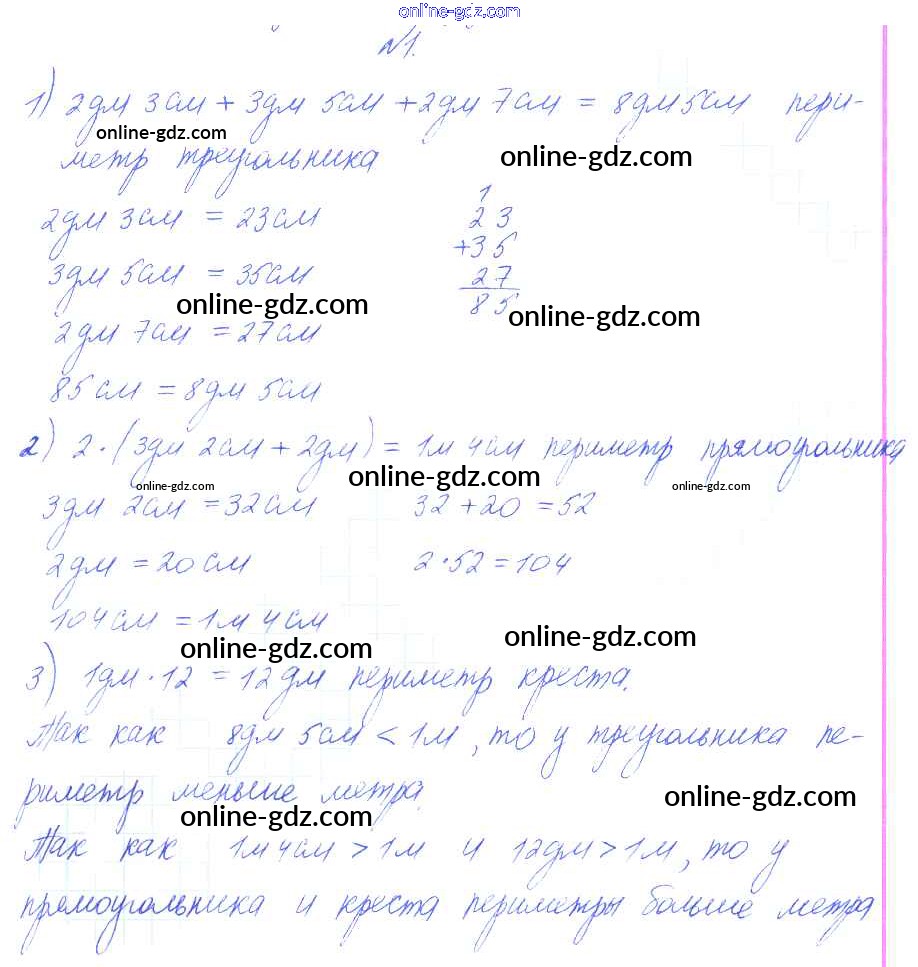 online-gdz.com
№1.
1) 2дм 3см + 3дм 5см + 2дм 7см = 8дм 5см пери-
online-gdz.com
метр треугольника
online-gdz.com
2дм 3см = 23см
1
23
+35
27
85
3дм 5см = 35см
online-gdz.com
online-gdz.com
2дм 7см = 27см
85см = 8дм 5см
2) 2·(3дм 2см + 2дм) = 1м 4см периметр прямоугольника
online-gdz.com
online-gdz.com
online-gdz.com
3дм 2см = 32см 32 + 20 = 52
2дм = 20см 2·52 = 104
104см = 1м 4см
online-gdz.com
online-gdz.com
3) 1дм·12 = 12дм периметр креста.
Так как 8дм 5см < 1м, то у треугольника пе-
риметр меньше метра.
online-gdz.com
online-gdz.com
Так как 1м 4см > 1м и 12дм > 1м, то у
прямоугольника и креста периметры больше метра